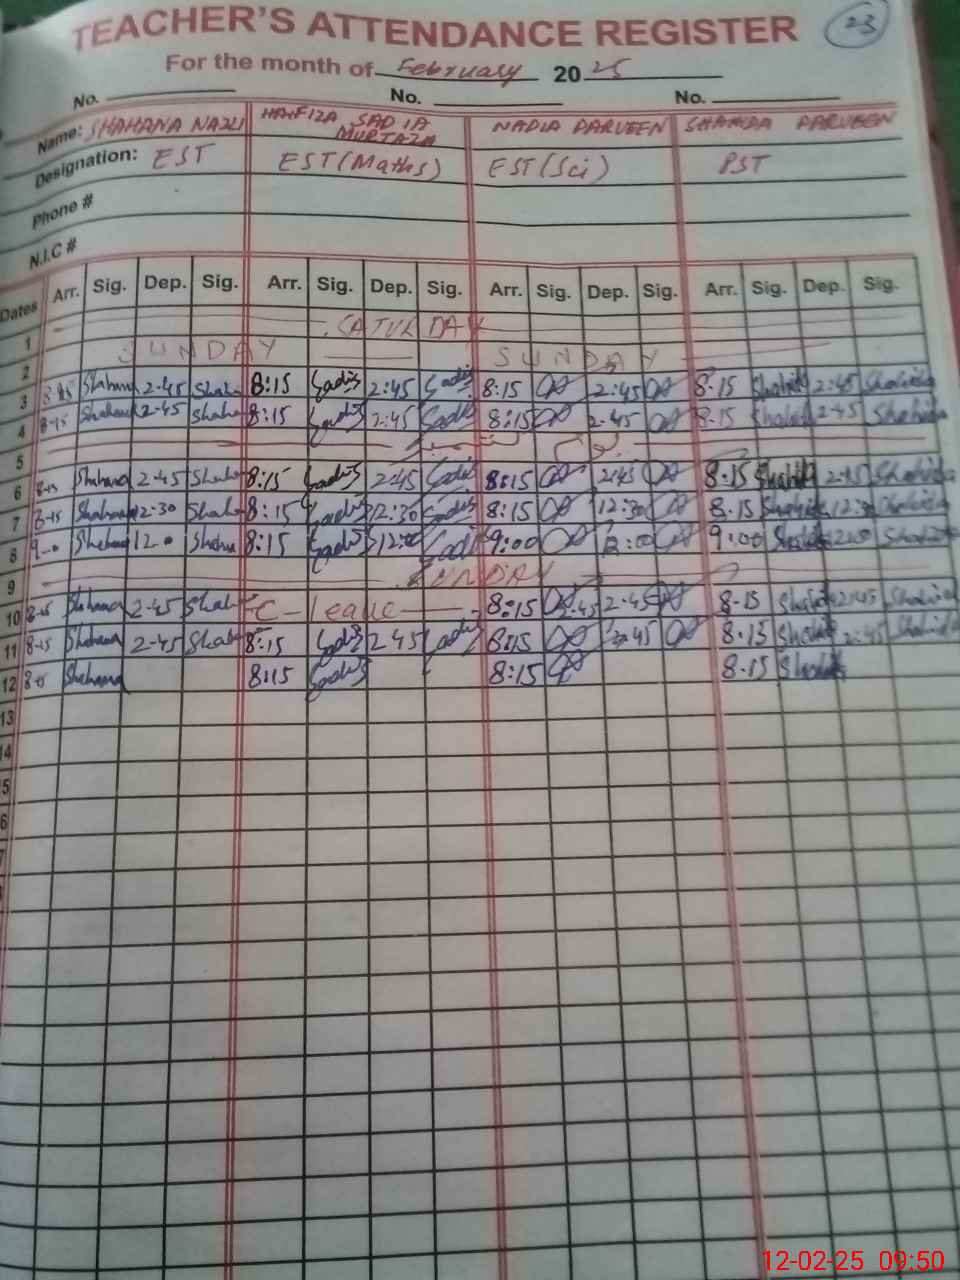 TEACHER'S ATTENDANCE REGISTER 23
For the month of February 20 25
No. No. No.
Name: SHAHANA NAZLI HAFIZA SADIA MURTAZA NADIA PARVEEN SHAHIDA PARVEEN
Designation: EST EST (Maths) EST (Sci) PST
Phone #
N.I.C #
Dates Arr. Sig. Dep. Sig. Arr. Sig. Dep. Sig. Arr. Sig. Dep. Sig. Arr. Sig. Dep. Sig.
1 SATURDAY
2 SUNDAY SUNDAY
3 8-15 Shahana 2-45 Shaha 8:15 Sadia 2:45 Sadia 8:15 2:45 8.15 Shahida 2:45 Shahida
4 8-15 Shahana 2-45 Shaha 8:15 Sadia 2:45 Sadia 8:15 2-45 8-15 Shahida 2-45 Shahida
5
6 8-15 Shahana 2-45 Shaha 8:15 Sadia 2:45 Sadia 8:15 2:45 8.15 Shahida 2-45 Shahida
7 8-15 Shahana 12-30 Shaha 8:15 Sadia 12:30 Sadia 8:15 12:30 8.15 Shahida 12:30 Shahida
8 9-0 Shahana 12.0 Shaha 8:15 Sadia 12:00 Sadia 9:00 12:00 9:00 Shahida 12:00 Shahida
9 SUNDAY
10 8-15 Shahana 2-45 Shaha C-leave 8:15 2-45 2-45 8-15 Shahida 2:45 Shahida
11 8-15 Shahana 2-45 Shaha 8:15 Sadia 2 45 Sadia 8:15 2:45 8.15 Shahida 2:45 Shahida
12 8-15 Shahana 8:15 Sadia 8:15 8.15 Shahida
13
14
5
6
7
12-02-25 09:50